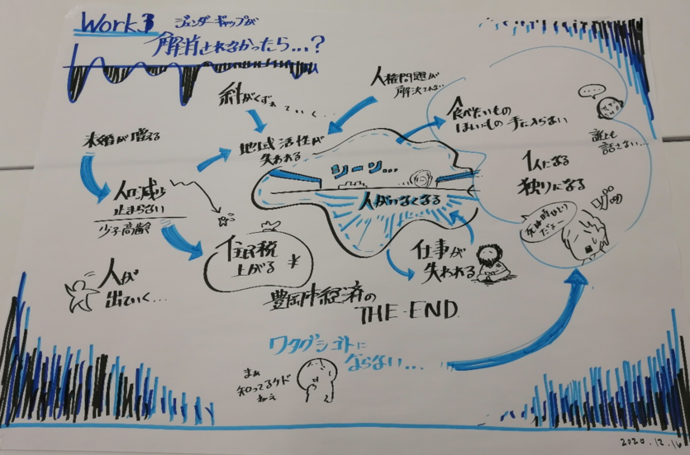 Work.3
ジェンダーギャップが
解消されなかったら...?
絆がくずれていく...
人権問題が
解決されない
食べたいもの
ほしいもの 手に入らない
誰とも
話さない...
未婚が増える
地域活性が
失われる
シーン...
1人になる
独りになる
人口減少
止まらない
少子高齢
人がいなくなる
死ぬ時ひとり
だなぁ…
住民税
上がる
¥
仕事が
失われる
人が
出ていく...
豊岡市経済の
THE END
ワタクシゴトに
ならない...
まぁ
知ってるケド
ねぇ
2020.12.16